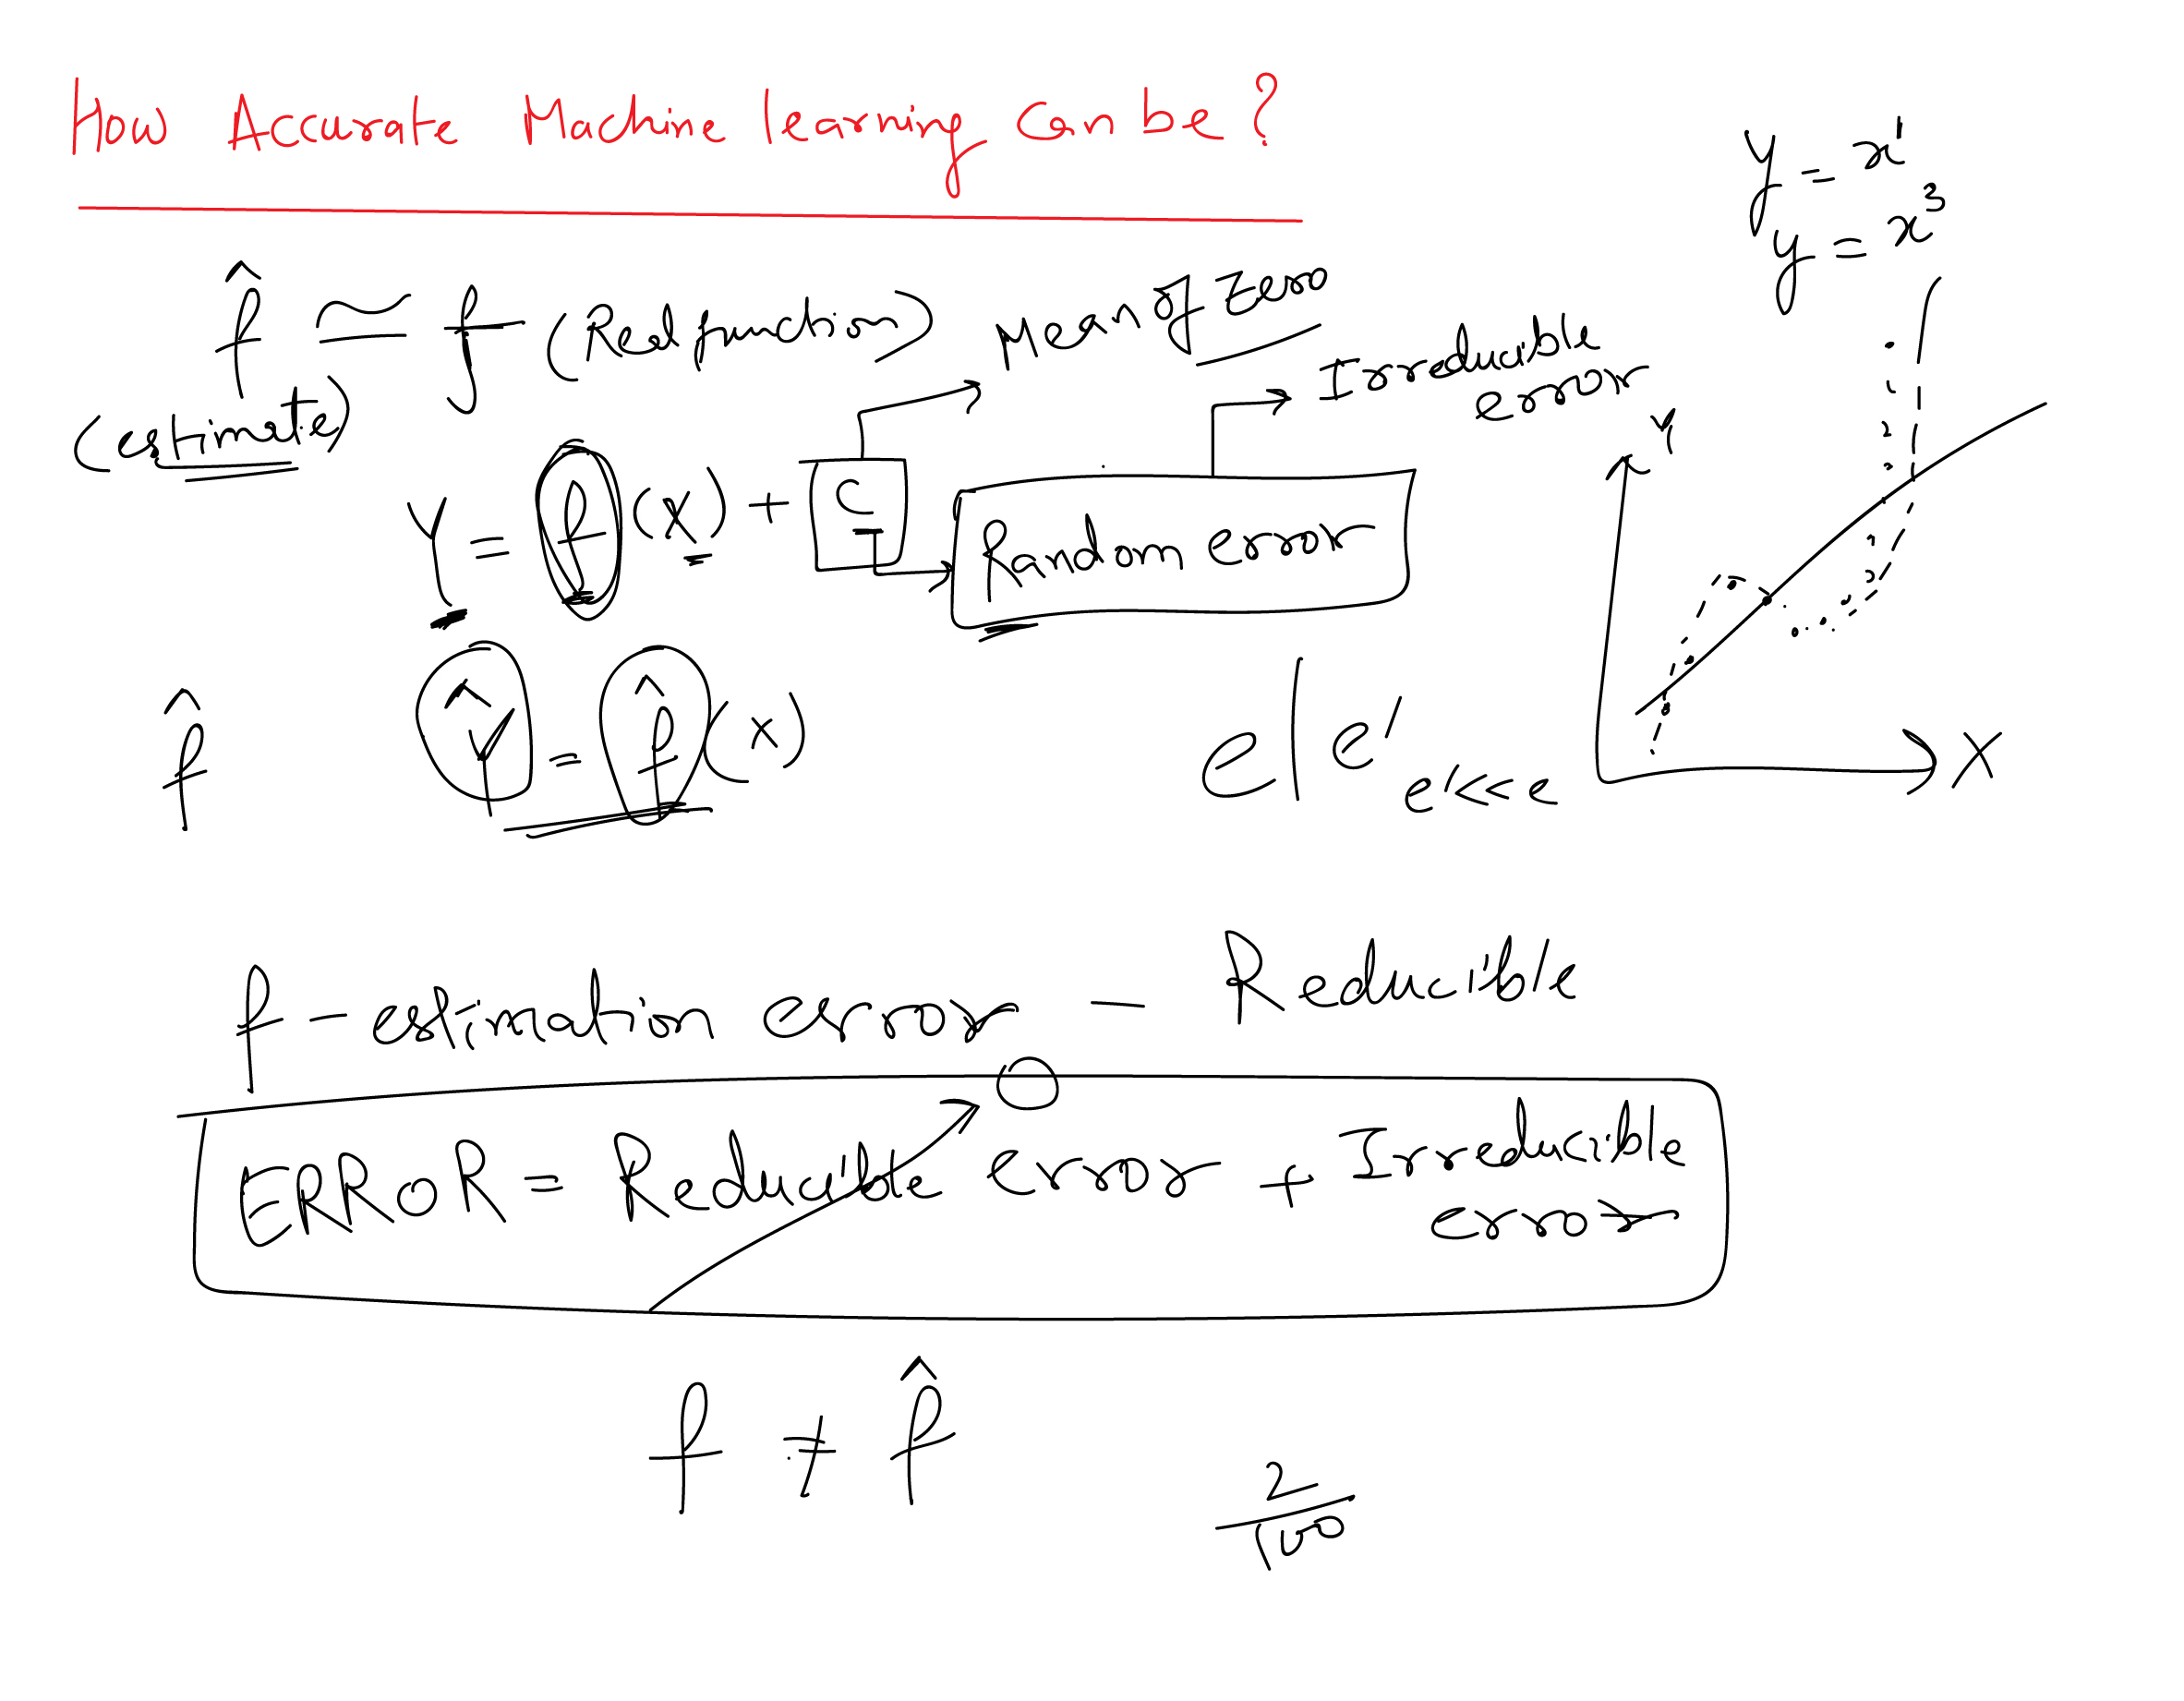 How Accurate Machine learning Can be?
y = x¹
y = x³
f̂ ≃ f (Real function)
(estimate)
Mean of Zero
Irreducible
error
Y = f (X) + ϵ
Random error
Ŷ = f̂ (x)
f̂
e | e'
e'<<< e
Y
X
f - estimation error - Reducible
ERROR = Reducible error + Irreducible
error
f ≠ f̂
2/100